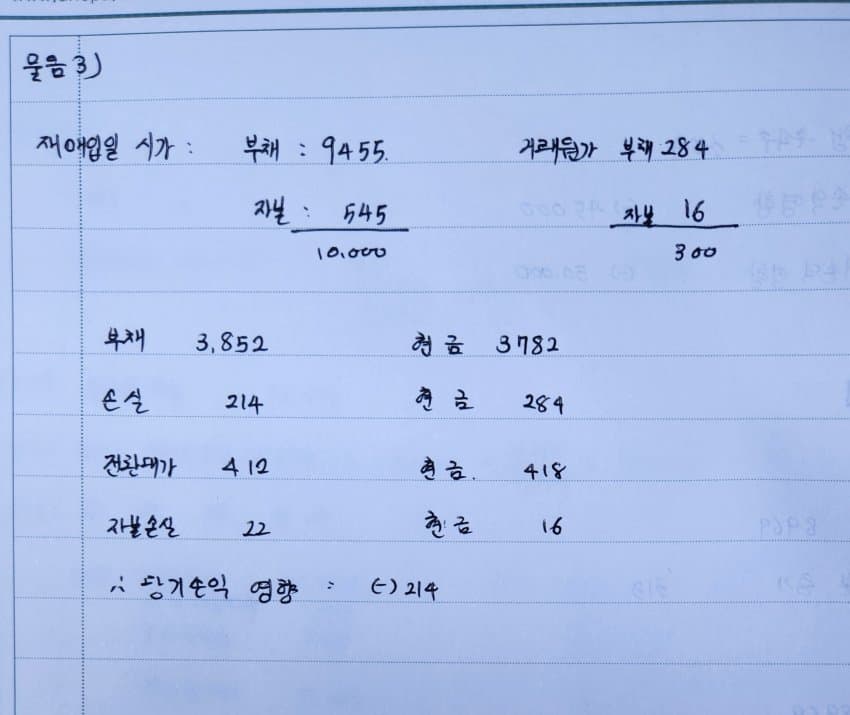 물음 3)
재매입일 시가 : 부채 : 9455. 거래원가 부채 284
자본 : 545 자본 16
10,000 300
부채 3,852 현금 3782
손실 214 현금 284
전환대가 412 현금. 418
자본손실 22 현금 16
∴ 당기손익 영향 : (-) 214